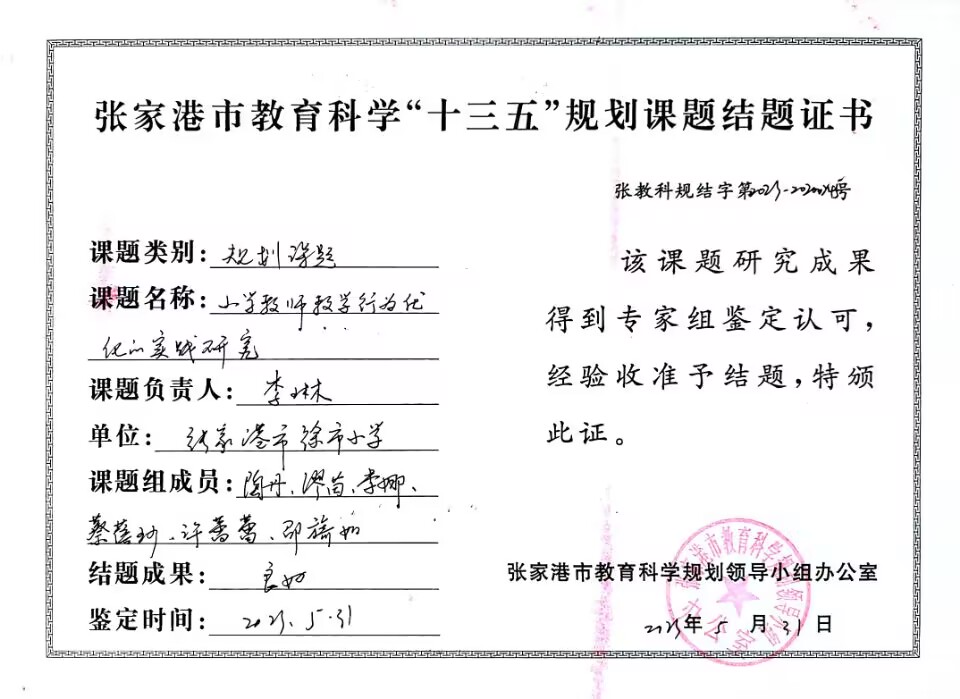 张家港市教育科学“十三五”规划课题结题证书
张教科规结字第号
课题类别：规划课题
课题名称：小学教师教学行为优
化的实践研究
课题负责人：李琳
单位：张家港市徐市小学
课题组成员：陶丹、缪苗、李娜、
蔡蓓、许蕾蕾、邵旖如
结题成果：良好
鉴定时间：5.31
该课题研究成果
得到专家组鉴定认可，
经验收准予结题，特颁
此证。
张家港市教育科学规划领导小组办公室
年5月31日
张家港市教育科学规划领导小组
办公室